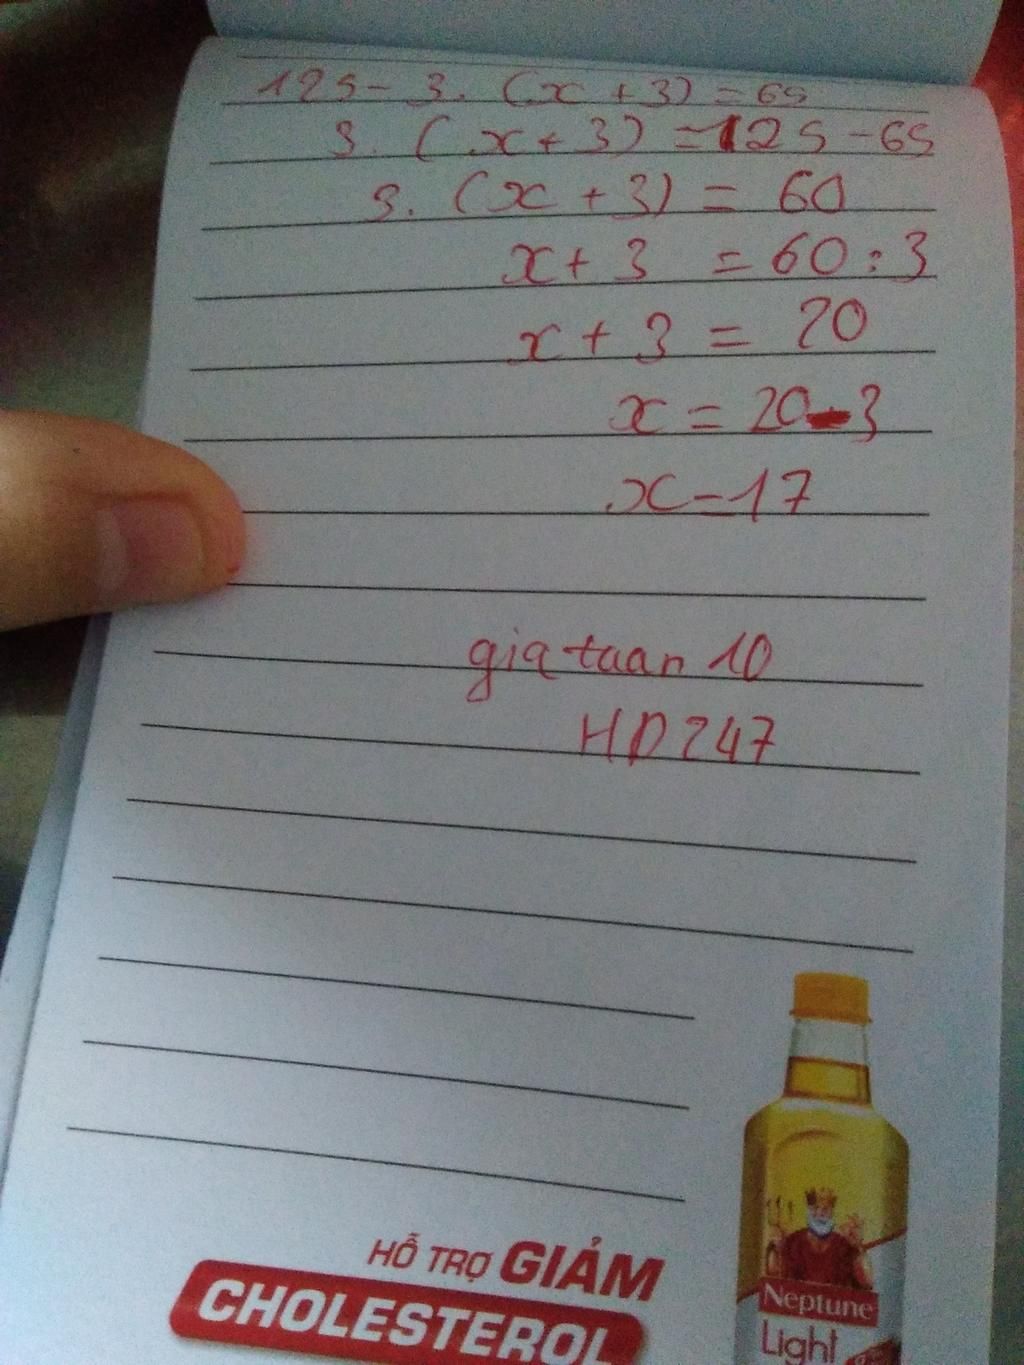 125 - 3. (x + 3) = 65
3. (x + 3) = 125 - 65
3. (x + 3) = 60
x + 3 = 60 : 3
x + 3 = 20
x = 20 - 3
x = 17
giatuan 10
HD 247
HỖ TRỢ GIẢM
CHOLESTEROL
Neptune
Light